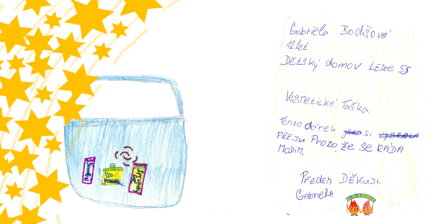 Gabriela Bodišová
12 let
DĚTSKÝ domov LEDCE 55
Kosmetickú Taška
Tento dárek si
PŘEJU PROTO ŽE SE RÁDA
MODIM.
Předem Děkuji.
Gabriela